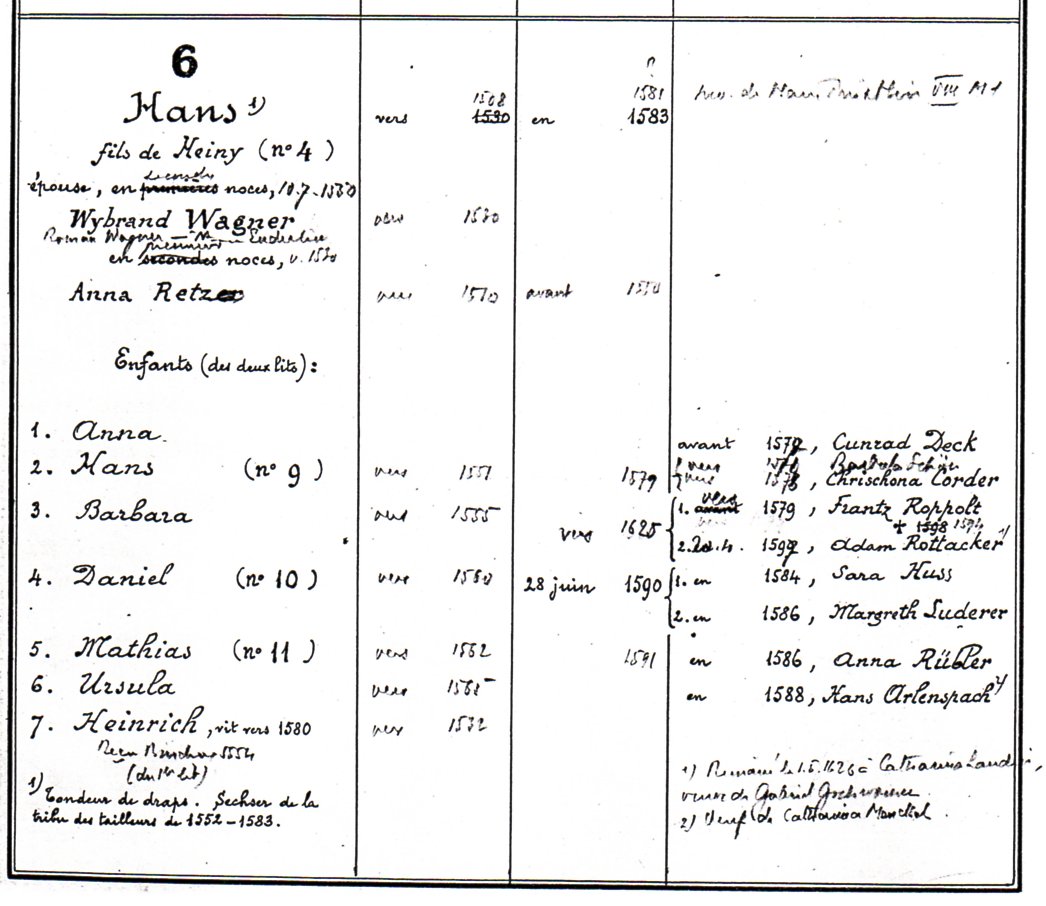 6
Hans 1) vers 1508 1530 en 1581 1583
fils de Heiny (nº 4)
épouse, en premières noces, 10.7.1550
Wybrand Wagner vers 1530
Roman Wagner
en secondes noces, v. 1530
Anna Retzer vers 1510 avant 1550
Enfants (des deux lits) :
1. Anna avant 1579, Cunrad Deck
2. Hans (nº 9) vers 1551 1579 vers
Chrischona Corder
3. Barbara vers 1555 vers 1625 1. avant vers 1579, Frantz Roppolt
✝ 1598 1594
2. Adam Rottacker 1)
4. Daniel (nº 10) vers 1560 28 juin 1590 1. en 1584, Sara Huss
2. en 1586, Margreth Luderer
5. Mathias (nº 11) vers 1562 1591 en 1586, Anna Rübler
6. Ursula vers 1565 en 1588, Hans Arlenspach 2)
7. Heinrich, vit vers 1580 vers 1532
1554
(du 1er lit)
1) Tondeur de draps. Sechser de la
tribu des tailleurs de 1552-1583.
1) Remarié le 1.5.1626 à Catharina
veuve de Gabriel
2) Veuf de Catharina